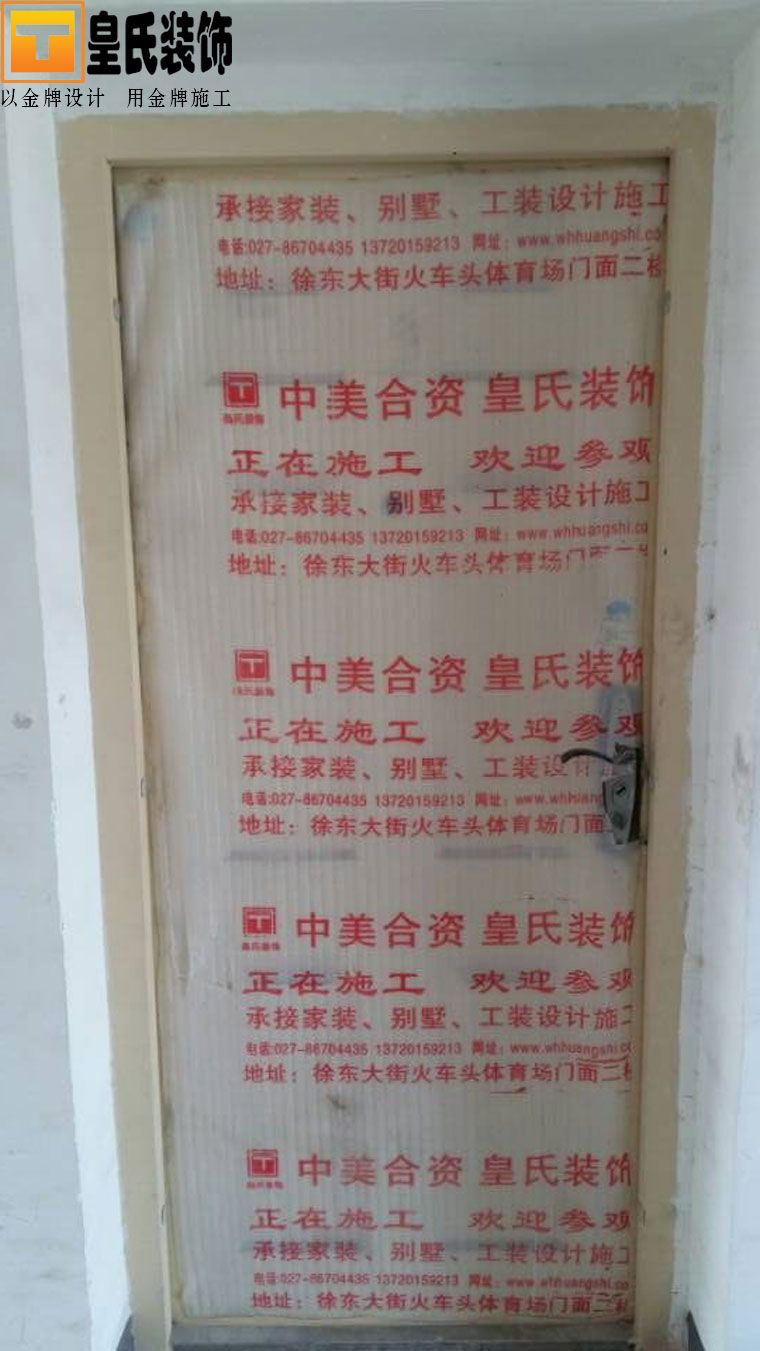 T 皇氏装饰
以金牌设计 用金牌施工
承接家装、别墅、工装设计施工
电话:027-86704435 13720159213 网址：www.whhuangshi.co
地址：徐东大街火车头体育场门面二楼
T 中美合资 皇氏装饰
皇氏装饰
正在施工 欢迎参观
承接家装、别墅、工装设计施工
电话:027-86704435 13720159213 网址：www.whhuangshi.co
地址：徐东大街火车头体育场门面二
T 中美合资 皇氏装饰
皇氏装饰
正在施工 欢迎参观
承接家装、别墅、工装设计施
电话:027-86704435 13720159213 网址：www.whhuang
地址：徐东大街火车头体育场门面二
T 中美合资 皇氏装饰
皇氏装饰
正在施工 欢迎参观
承接家装、别墅、工装设计施工
电话:027-86704435 13720159213 网址：www.whhuangshi.co
地址：徐东大街火车头体育场门面二楼
T 中美合资 皇氏装饰
皇氏装饰
正在施工 欢迎参观
承接家装、别墅、工装设计施工
电话:027-86704435 13720159213 网址：www.whhuangshi.co
地址：徐东大街火车头体育场门面二楼